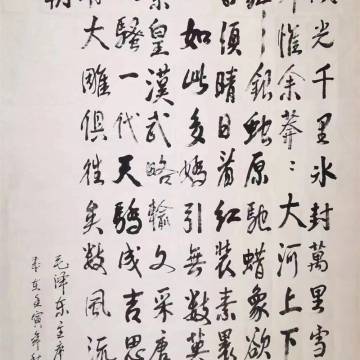 光千里冰封萬里雪
惟余莽〻大河上下
銀蛇原馳蜡象欲
須晴日看紅裝素裹
如此多嬌引無數英
皇漢武略輸文采唐
騷一代天驕成吉思
大雕俱往矣數風流
朝
毛泽东主席
壬寅年秋